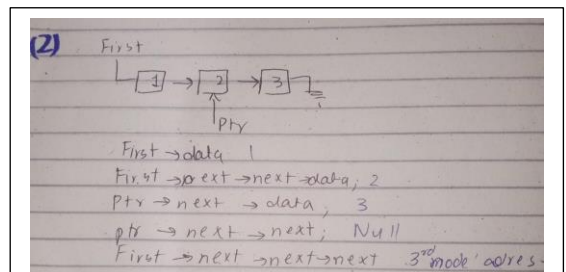 (2)
First
1 → 2 → 3
Ptr
First → data 1
First → next → next → data; 2
Ptr → next → data; 3
ptr → next → next; Null
First → next → next → next 3rd mode' adres